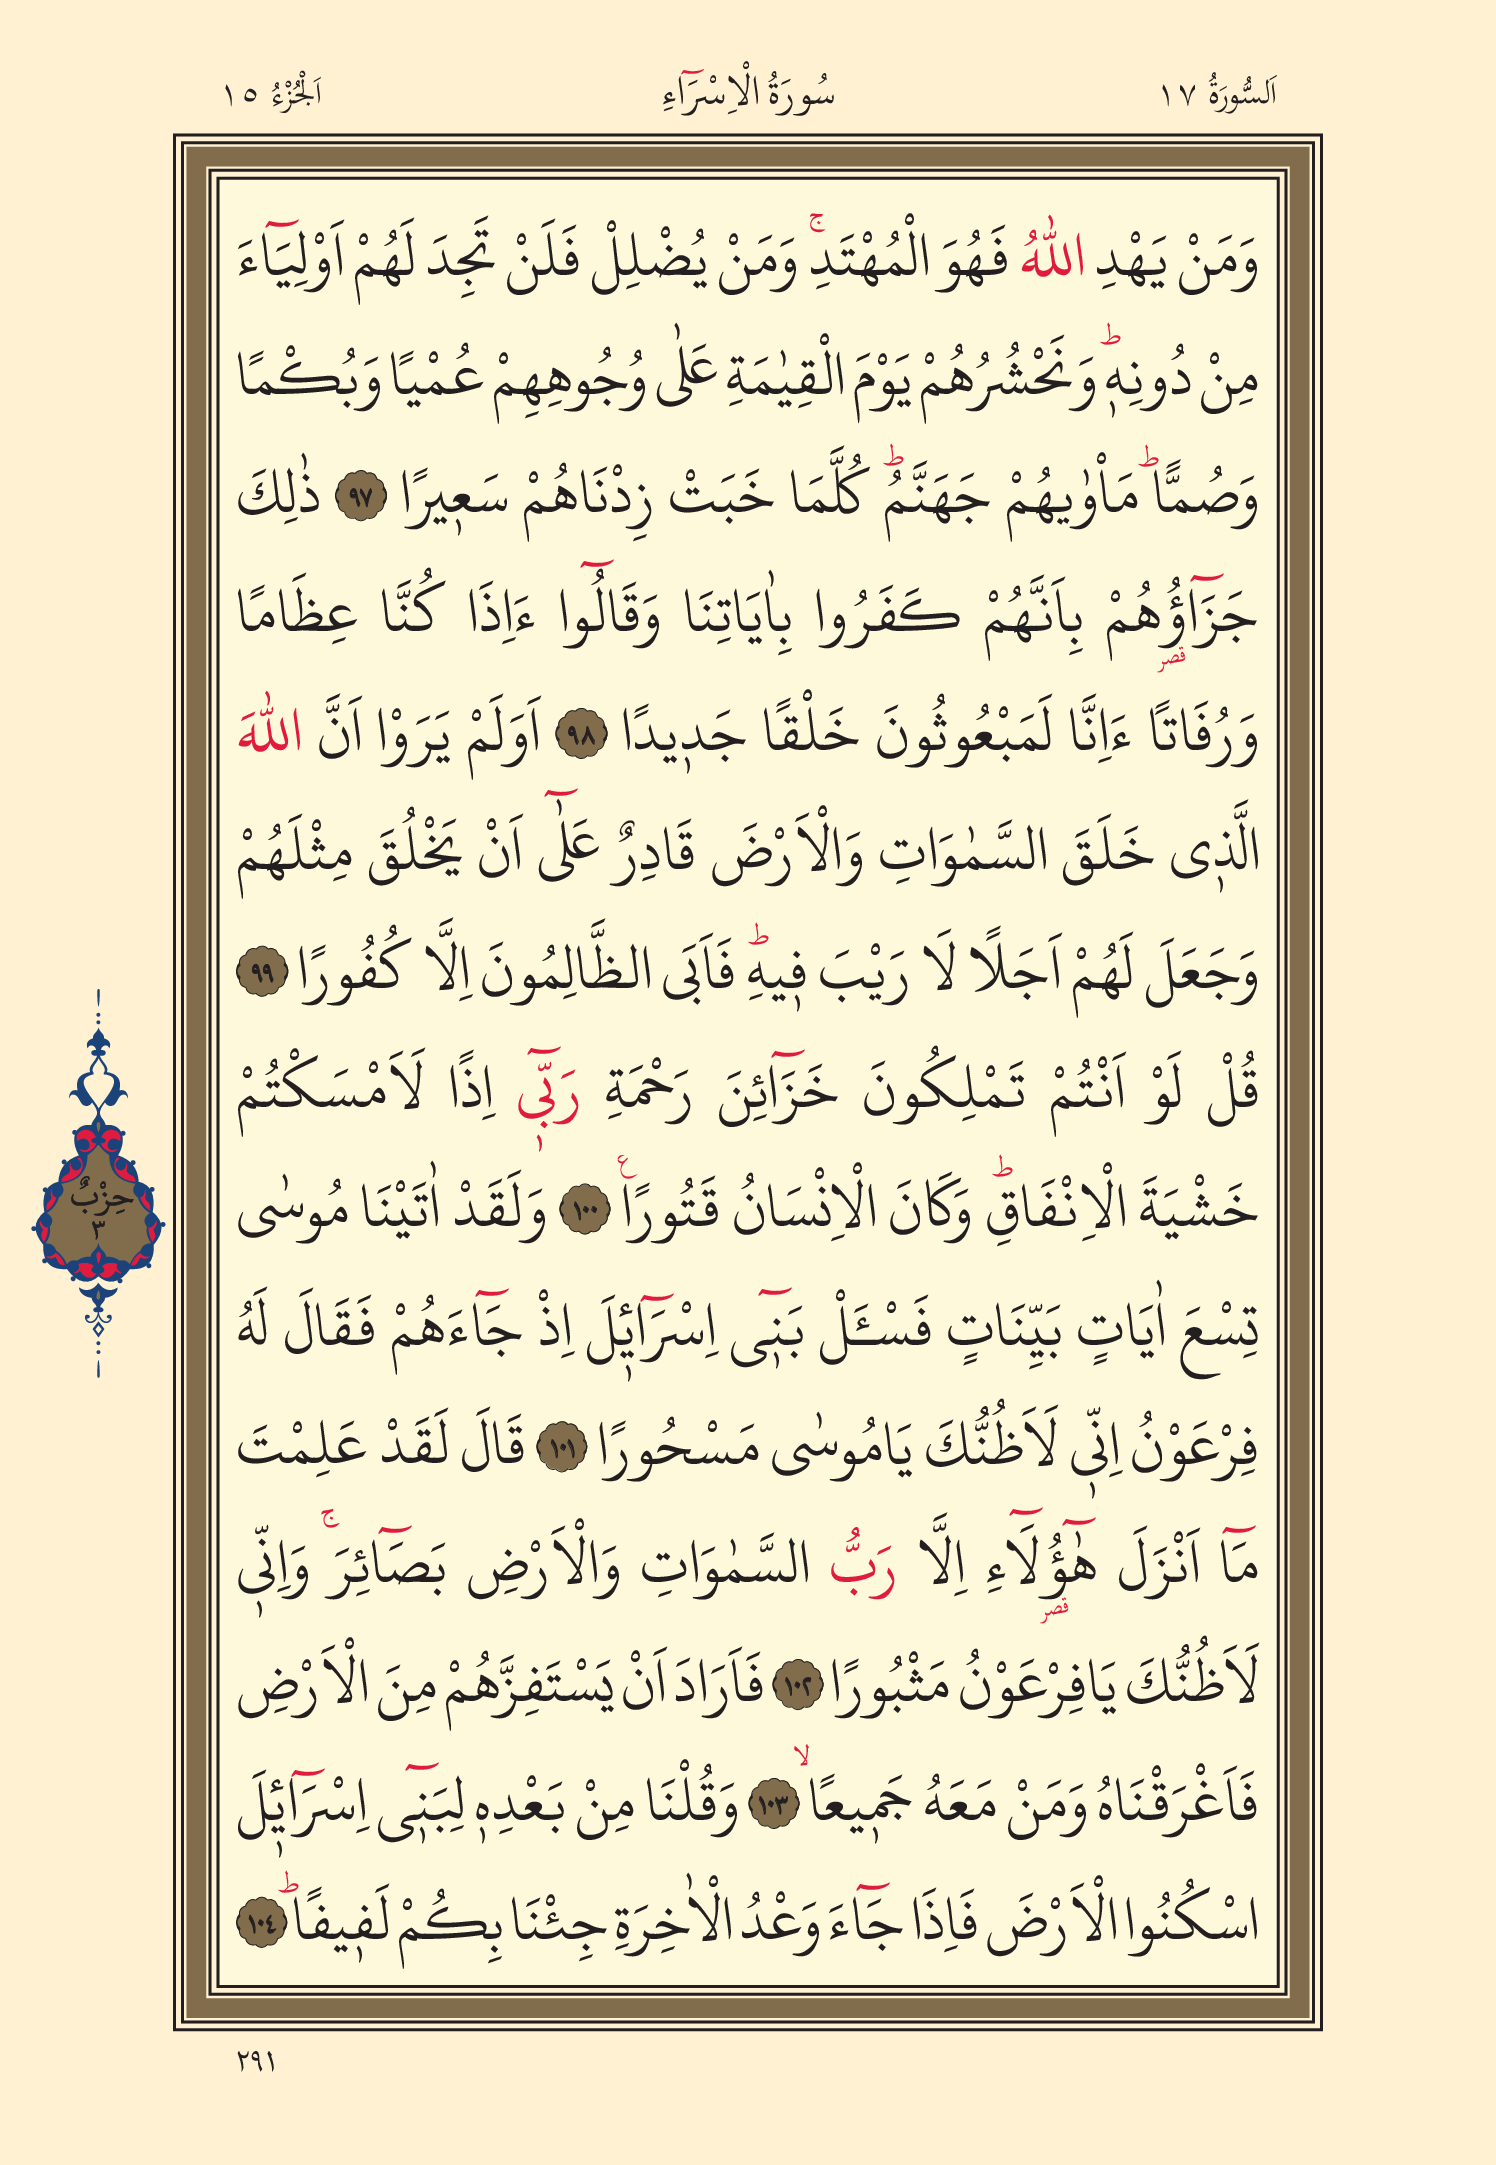 اَلسُّورَةُ ١٧ سُورَةُ الْاِسْرَٓاءِ اَلْجُزْءُ ١٥
وَمَنْ يَهْدِ اللّٰهُ فَهُوَ الْمُهْتَدِۚ وَمَنْ يُضْلِلْ فَلَنْ تَجِدَ لَهُمْ اَوْلِيَٓاءَ
مِنْ دُونِه۪ۜ وَنَحْشُرُهُمْ يَوْمَ الْقِيٰمَةِ عَلٰى وُجُوهِهِمْ عُمْيًا وَبُكْمًا
وَصُمًّاۜ مَاْوٰيهُمْ جَهَنَّمُۜ كُلَّمَا خَبَتْ زِدْنَاهُمْ سَع۪يرًا ﴿٩٧﴾ ذٰلِكَ
جَزَٓاؤُ۬هُمْ بِاَنَّهُمْ كَفَرُوا بِاٰيَاتِنَا وَقَالُٓوا ءَاِذَا كُنَّا عِظَامًا
قصر
وَرُفَاتًا ءَاِنَّا لَمَبْعُوثُونَ خَلْقًا جَد۪يدًا ﴿٩٨﴾ اَوَلَمْ يَرَوْا اَنَّ اللّٰهَ
الَّذ۪ى خَلَقَ السَّمٰوَاتِ وَالْاَرْضَ قَادِرٌ عَلٰٓى اَنْ يَخْلُقَ مِثْلَهُمْ
وَجَعَلَ لَهُمْ اَجَلًا لَا رَيْبَ ف۪يهِۜ فَاَبَى الظَّالِمُونَ اِلَّا كُفُورًا ﴿٩٩﴾
قُلْ لَوْ اَنْتُمْ تَمْلِكُونَ خَزَٓائِنَ رَحْمَةِ رَبّ۪ٓى اِذًا لَاَمْسَكْتُمْ
خَشْيَةَ الْاِنْفَاقِۜ وَكَانَ الْاِنْسَانُ قَتُورًا۟ ﴿١٠٠﴾ وَلَقَدْ اٰتَيْنَا مُوسٰى
تِسْعَ اٰيَاتٍ بَيِّنَاتٍ فَسْـَٔلْ بَن۪ٓى اِسْرَٓائ۪لَ اِذْ جَٓاءَهُمْ فَقَالَ لَهُ
فِرْعَوْنُ اِنّ۪ى لَاَظُنُّكَ يَامُوسٰى مَسْحُورًا ﴿١٠١﴾ قَالَ لَقَدْ عَلِمْتَ
مَٓا اَنْزَلَ هٰٓؤُ۬لَٓاءِ اِلَّا رَبُّ السَّمٰوَاتِ وَالْاَرْضِ بَصَٓائِرَۚ وَاِنّ۪ى
قصر
لَاَظُنُّكَ يَافِرْعَوْنُ مَثْبُورًا ﴿١٠٢﴾ فَاَرَادَ اَنْ يَسْتَفِزَّهُمْ مِنَ الْاَرْضِ
فَاَغْرَقْنَاهُ وَمَنْ مَعَهُ جَم۪يعًاۙ ﴿١٠٣﴾ وَقُلْنَا مِنْ بَعْدِه۪ لِبَن۪ٓى اِسْرَٓائ۪لَ
اسْكُنُوا الْاَرْضَ فَاِذَا جَٓاءَ وَعْدُ الْاٰخِرَةِ جِئْنَا بِكُمْ لَف۪يفًاۜ ﴿١٠٤﴾
حِزْبٌ
٣
٢٩١